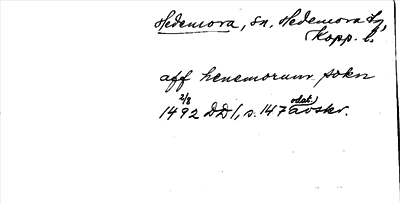 Hedemora, sn, Hedemora tg,
Kopp. l.
aff henemorum sokn
2/8
1492 DD 1, s. 147 avskr.
odat.)